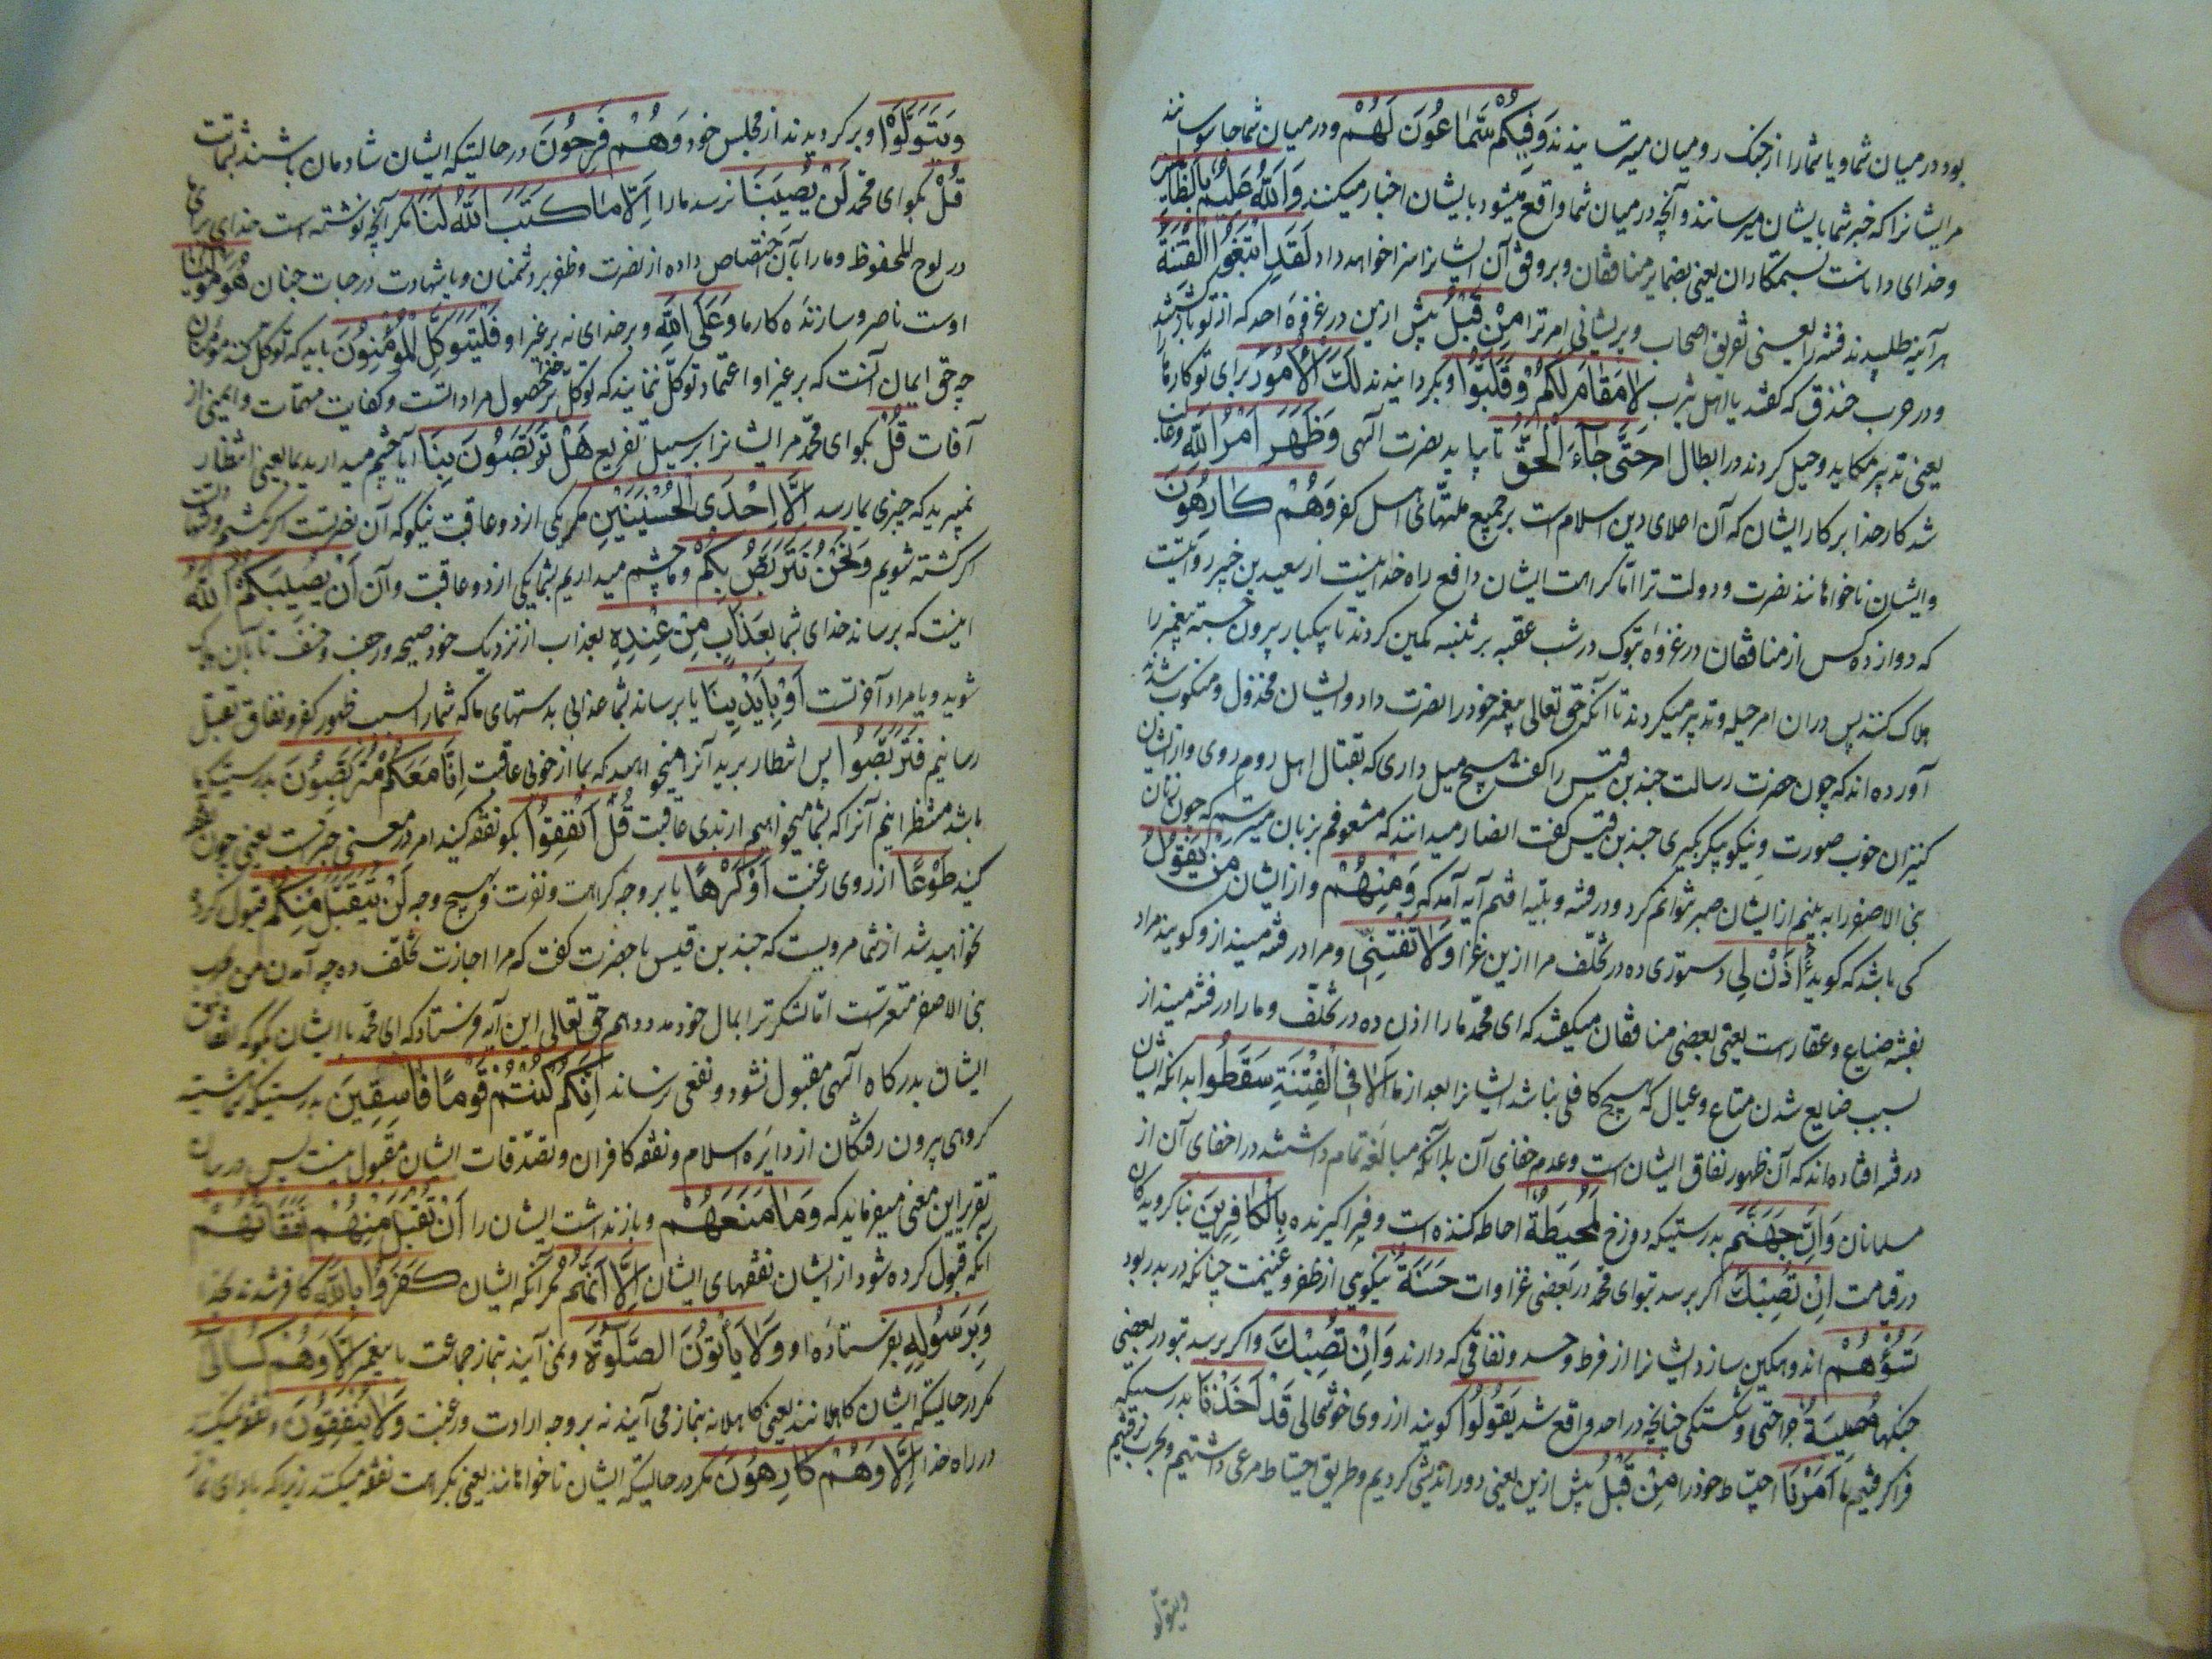 بود در میان شما و یا شما را از جنک رو میان میترسانیدند وَفِیکُمْ سَمّاعُونَ لَهُمْ و در میان شما جاسوسانند
مر ایشانرا که خبر شما بایشان میرسانند و آنچه در میان شما واقع میشود بایشان اخبار میکنند وَاللّٰهُ عَلِیمٌ بِالظّالِمِینَ
و خدای داناست بستمکاران یعنی بضمایر منافقان و بر وفق آن ایشانرا سزا خواهد داد لَقَدِ ابْتَغَوُا الْفِتْنَةَ
هر آینه طلبیدند فتنه را یعنی تفریق اصحاب و پریشانی امر ترا مِنْ قَبْلُ پیش ازین در غزوه احد که از تو باز کشتند
و در حرب خندق که کفتند یا اهل یثرب لا مُقامَ لَکُمْ وَقَلَّبُوا و بکردانیدند لَکَ الْاُمُورَ برای تو کارها را
یعنی تدبیر مکاید و حیل کردند در ابطال امر حَتّٰی جٰاءَ الْحَقُّ تا بیاید نصرت آلهی وَظَهَرَ اَمْرُ اللّٰهِ
شد کار خدا بر کار ایشان که آن اعلای دین اسلام است بر جمیع ملتهای اهل کفر وَهُمْ کارِهُونَ
و ایشان ناخواهانند نصرت و دولت ترا امّا کراهت ایشان دافع راه خدا نیست از سعید بن جبیر روایتست
که دوازده کس از منافقان در غزوهٔ تبوک در شب عقبه بر ثنیه کمین کردند تا بیکبار بیرون جسته پیغمبر را
هلاک کنند پس در ان امر حیله و تدبیر میکردند تا آنکه حق تعالی پیغمبر خود را نصرت داد و ایشان مخذول و منکوب شدند
آورده اند که چون حضرت رسالت جند بن قیس را کفت هیچ میل داری که بقتال اهل روم روی و از ایشان
کنیزان خوب صورت و نیکو پیکر بکیری جند بن قیس کفت انصار میدانند که مشعوفم بزنان میترسم که چون زنان
بنی الاصفر را به بینم از ایشان صبر نتوانم کرد و در فتنه و بلیه افتم آیه آمد که وَمِنْهُمْ و از ایشان مَنْ یَقُولُ
کسی باشد که کوید ائْذَنْ لِی دستوری ده در تخلّف مرا ازین غزا وَلا تَفْتِنِّی و مرا در فتنه مینداز و کویند مراد
بفتنه ضیاع و عقارست یعنی بعضی منافقان میکفتند که ای محمّد ما را اذن ده در تخلّف و ما را در فتنه مینداز
بسبب ضایع شدن متاع و عیال که هیچ کافلی نباشد ایشانرا بعد از ما اَلا فِی الْفِتْنَةِ سَقَطُوا بدانکه ایشان
در فتنه افتاده اند که آن ظهور نفاق ایشان است و عدم خفای آن با آنکه مبالغه تمام داشتند در اخفای آن از
مسلمانان وَاِنَّ جَهَنَّمَ بدرستیکه دوزخ لَمُحِیطَةٌ احاطه کننده است و فرا کیرنده بِالْکافِرِینَ بنا کرویدکان
در قیامت اِنْ تُصِبْکَ اکر برسد بتو ای محمّد در بعضی غزاوات حَسَنَةٌ نیکویی از ظفر و غنیمت چنانکه در بدر بود
تَسُؤْهُمْ اندوهکین سازد ایشانرا از فرط حسد و نفاقی که دارند وَاِنْ تُصِبْکَ و اکر برسد بتو در بعضی
جنکها مُصِیبَةٌ جراحتی و شکستکی چنانچه در احد واقع شد یَقُولُوا کویند از روی خوشحالی قَدْ اَخَذْنا بدرستیکه
فرا کرفتیم ما اَمْرَنا احتیاط خود را مِنْ قَبْلُ پیش ازین یعنی دور اندیشی کردیم و طریق احتیاط مرعی داشتیم و بحرب نرفتیم
ویتولّو
وَیَتَوَلَّوْا و برکردیدند از مجلس خود وَهُمْ فَرِحُونَ در حالتیکه ایشان شادمان باشند بشماتت
قُلْ بکوای محمّد لَنْ یُصِیبَنا نرسد ما را اِلّا ما کَتَبَ اللّٰهُ لَنا مکر آنچه نوشته است خدای برای ما
در لوح المحفوظ و ما را بآن اختصاص داده از نصرت و ظفر بر دشمنان و یا شهادت و درجات جنان هُوَ مَوْلانا
اوست ناصر و سازندهٔ کار ما وَعَلَی اللّٰهِ و بر خدای نه بر غیر او فَلْیَتَوَکَّلِ الْمُؤْمِنُونَ باید که توکل کنند مؤمنان
چه حق ایمان آنست که بر غیر او اعتماد و توکّل ننمایند که توکل بر حق حصول مراداتست و کفایت مهمّات و ایمنی از
آفات قُلْ بکوای محمّد مر ایشانرا بر سبیل تفریع هَلْ تَرَبَّصُونَ بِنا آیا چشم میدارید بما یعنی انتظار
نمیبرید که چیزی بما رسد اِلّا اِحْدَی الْحُسْنَیَیْنِ مکر یکی از دو عاقبت نیکو که آن نصرتست اکر بکشیم و شهادت
اکر کشته شویم وَنَحْنُ نَتَرَبَّصُ بِکُمْ و ما چشم میداریم بشما یکی از دو عاقبت و آن اَنْ یُصِیبَکُمُ اللّٰهُ
اینست که برساند خدای شما بِعَذابٍ مِنْ عِنْدِهِ بعذاب از نزدیک خود صیحه و رجف و خسف تا بآن هلاک
شوید و یا مراد آخرتست اَوْ بِاَیْدِینا یا برساند بشما عذابی بدستهای ما که شما را بسبب ظهور کفر و نفاق بقتل
رسانیم فَتَرَبَّصُوا پس انتظار برید آنرا میخواهید که بما از خوبی عاقبت اِنّا مَعَکُمْ مُتَرَبِّصُونَ بدرستیکه ما
باشد منتظرانیم آنرا که بشما میخواهیم از بدی عاقبت قُلْ اَنْفِقُوا بکو نفقه کنید امر در معنی خبرست یعنی چون
کنید طَوْعاً از روی رغبت اَوْ کَرْهاً یا بر وجه کراهت و نفرت بهیچ وجه لَنْ یُتَقَبَّلَ مِنْکُمْ قبول کرده
نخواهد شد از شما مرویست که جند بن قیس با حضرت کفت که مرا اجازت تخلّف ده چه آمدن من بحرب
بنی الاصفر متعذرست امّا لشکر ترا بمال خود مدد دهم حق تعالی این آیه فرستاد که ای محمّد با ایشان بکو که نفقات
ایشان بدرکاه آلهی مقبول نشود و نفعی نرساند اِنَّکُمْ کُنْتُمْ قَوْماً فاسِقِینَ بدرستیکه شما هستید
کروهی بیرون رفتکان از دایرهٔ اسلام و نفقه کافران و تصدّقات ایشان مقبول نیست پس در بیان
تقریر این معنی میفرماید که وَما مَنَعَهُمْ و باز نداشت ایشان را اَنْ تُقْبَلَ مِنْهُمْ نَفَقاتُهُمْ
آنکه قبول کرده شود از ایشان نفقهای ایشان اِلّا اَنَّهُمْ مکر آنکه ایشان کَفَرُوا بِاللّٰهِ کافر شدند بخدا
وَبِرَسُولِهِ بفرستادهٔ او وَلا یَأْتُونَ الصَّلٰوةَ و نمی آیند بنماز جماعت با پیغمبر اِلّا وَهُمْ کُسالٰی
مکر در حالتیکه ایشان کاهلانند یعنی کاهلانه بنماز می آیند نه بر وجه ارادت و رغبت وَلا یُنْفِقُونَ و نفقه نمیکنند
در راه خدا اِلّا وَهُمْ کارِهُونَ مکر در حالتیکه ایشان ناخواهانند یعنی بکراهت نفقه میکنند زیرا که